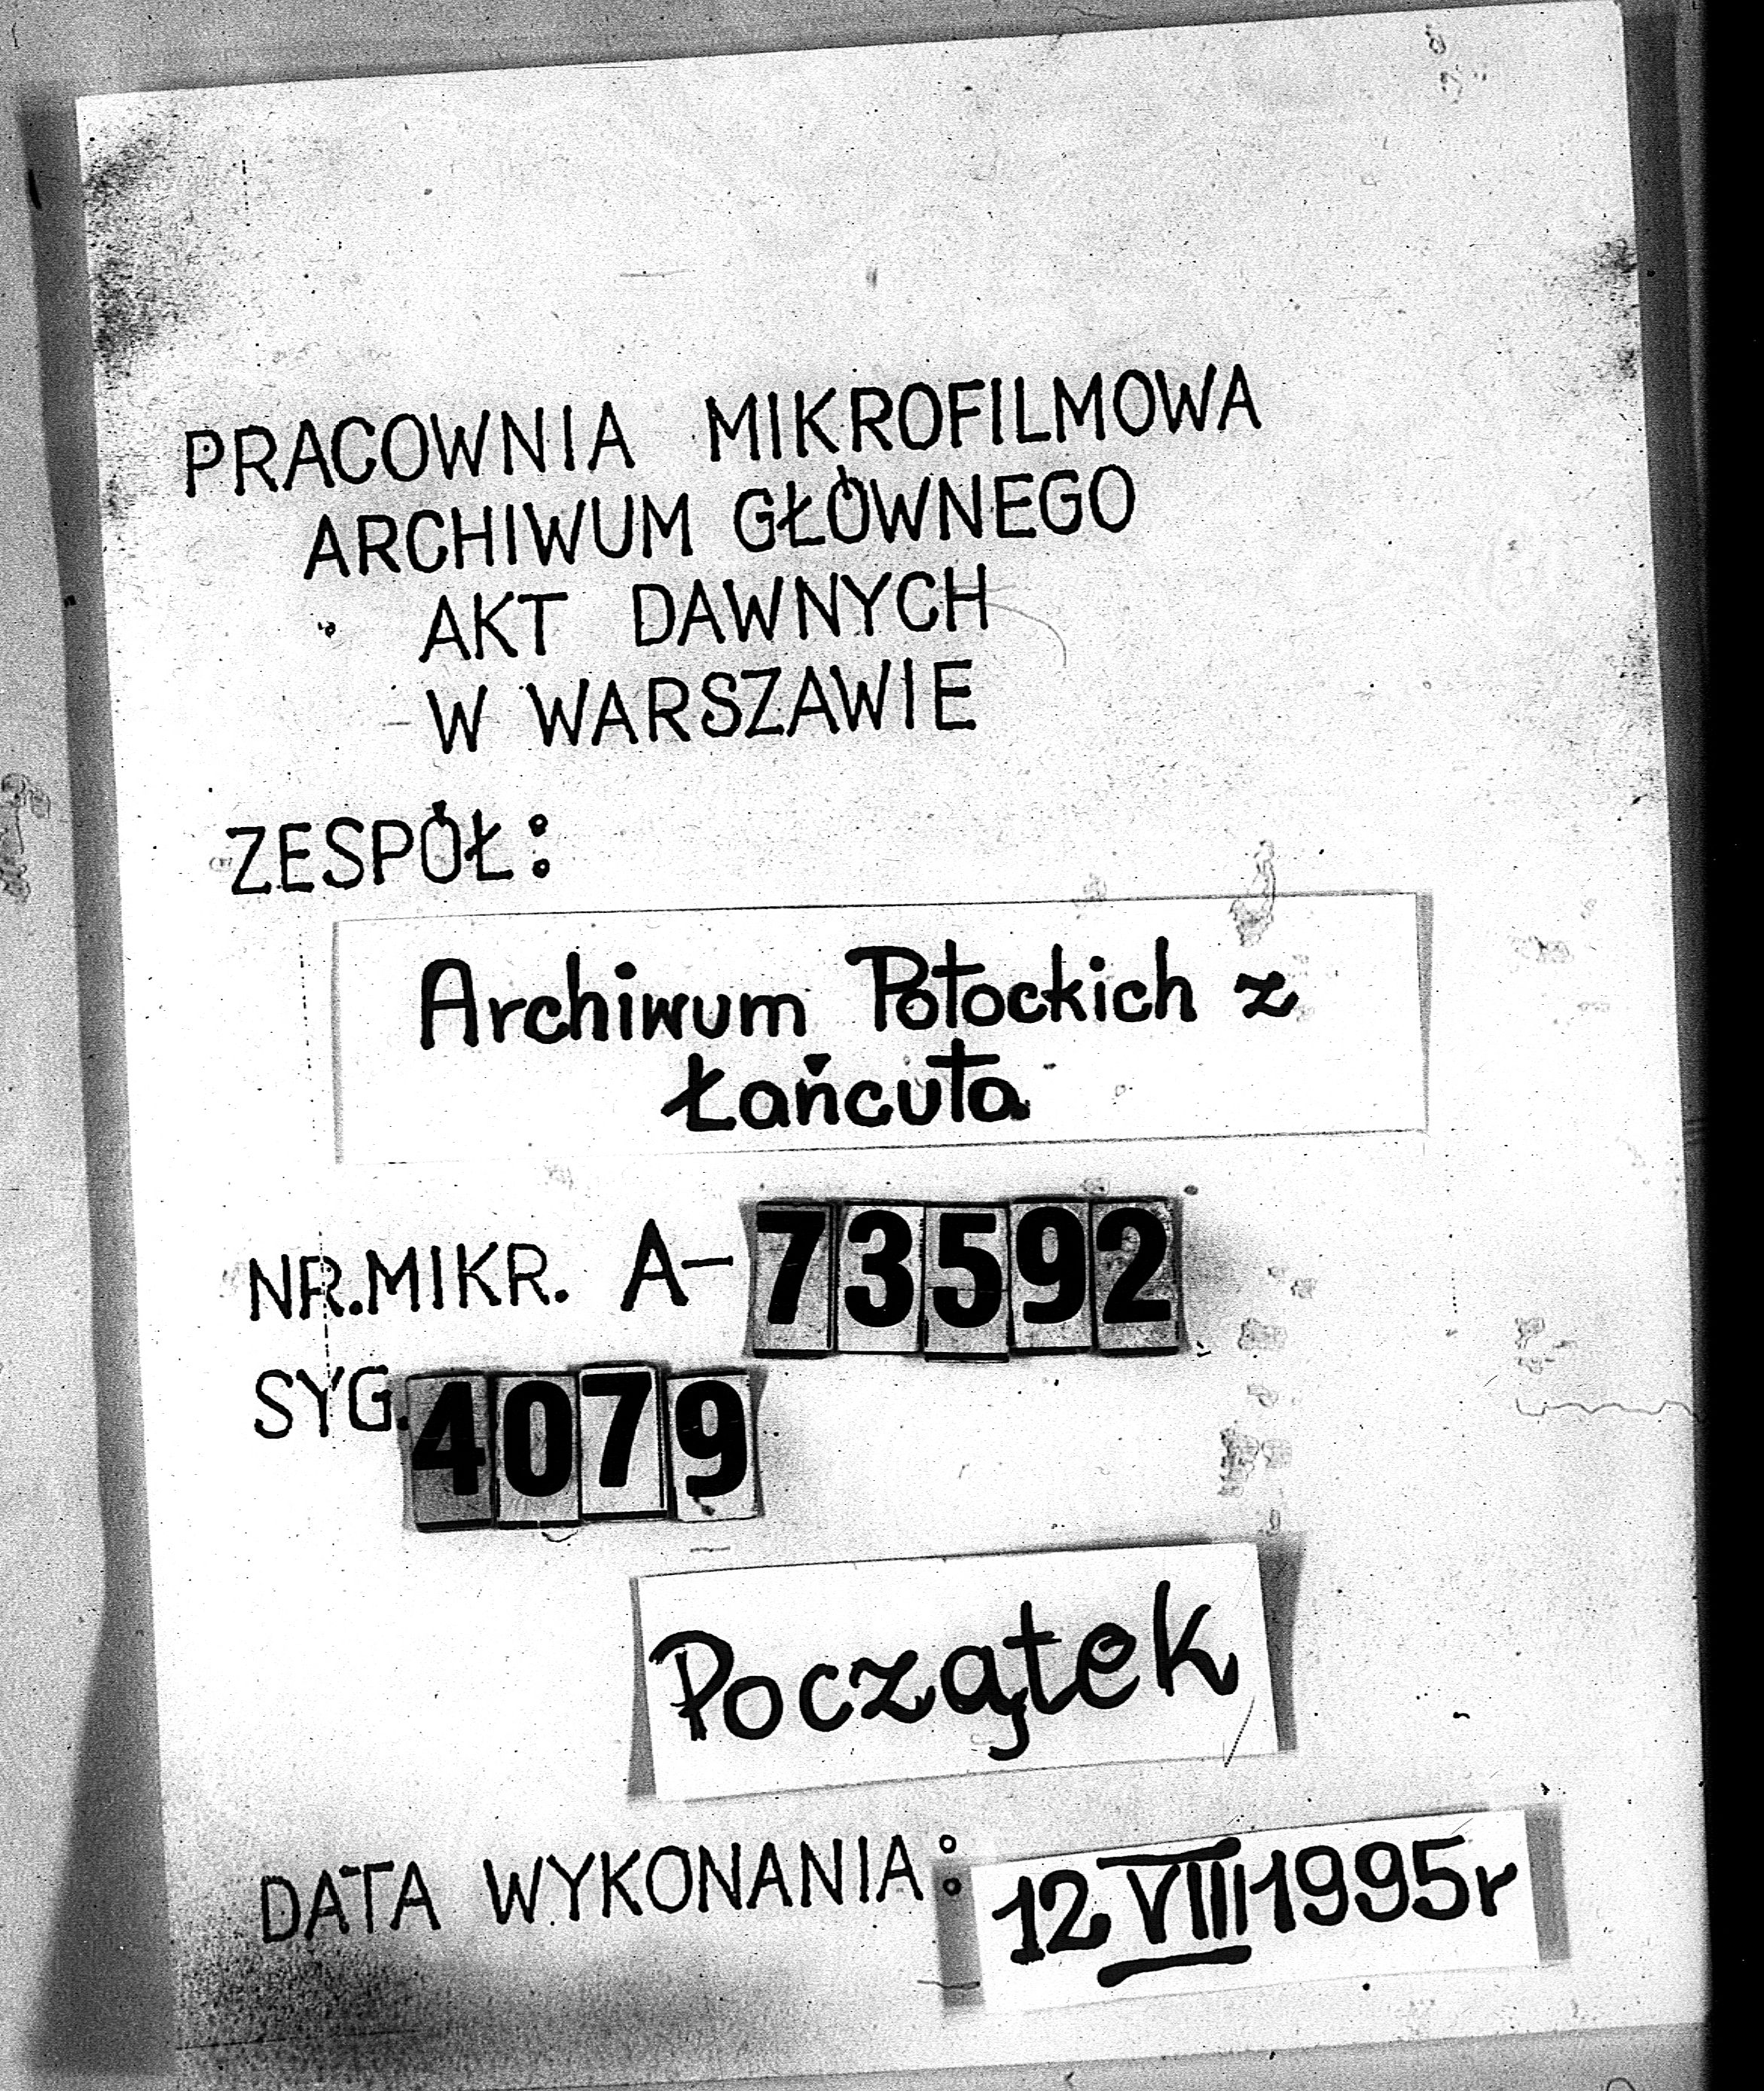 PRACOWNIA MIKROFILMOWA
ARCHIWUM GŁÓWNEGO
AKT DAWNYCH
W WARSZAWIE
ZESPÓŁ:
Archiwum Potockich z
Łańcuta
NR.MIKR. A-73592
SYG.4079
Początek
DATA WYKONANIA: 12 VIII 1995r